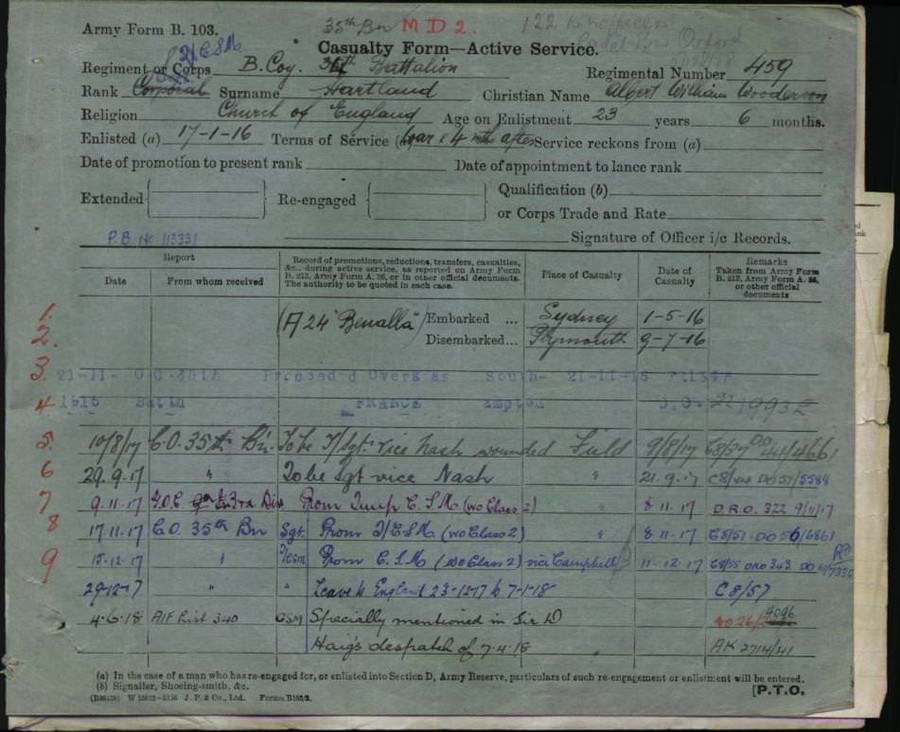 35th Bn MD2
Army Form B. 103.
Casualty Form—Active Service.
Regiment or Corps B. Coy. Battalion Regimental Number 459
Rank Corporal Surname Hartland Christian Name Albert William Wooderson
Religion Church of England Age on Enlistment 23 years 6 months.
Enlisted (a) 17-1-16 Terms of Service (b) war & 4 mths after Service reckons from (a)
Date of promotion to present rank Date of appointment to lance rank
Extended Re-engaged Qualification (b)
or Corps Trade and Rate
Signature of Officer i/c Records.
Report
Date From whom received
Record of promotions, reductions, transfers, casualties, &c., during active service, as reported on Army Form B. 213, Army Form A. 36, or in other official documents. The authority to be quoted in each case.
Place of Casualty
Date of Casualty
Remarks
Taken from Army Form B. 213, Army Form A. 36, or other official documents
1. (A 24 "Benalla") Embarked ... Sydney 1-5-16
2. Disembarked... Plymouth 9-7-16
3. 21-11- Proceeded Overseas South- 21-11-16
4 France ampton
5. 10/8/17 C.O. 35th Bn. To be T/Sgt. vice Nash wounded Field 9/8/17
6 29.9.17 " To be Sgt vice Nash " 21.9.17
7 9.11.17 G.O.C. 3rd Div Prom Temp C.S.M (wo Class 2) " 8.11.17 D.R.O. 322 9/11/17
8 17.11.17 C.O. 35th Bn Sgt. Prom T/C.S.M (wo Class 2) " 8.11.17
9 15.12.17 " T/CSM Prom C.S.M (wo Class 2) vice Campbell 11.12.17
29-12-17 " " Leave to England 23-12-17 to 7-1-18 C8/57
4.6.18 AIF List 340 CSM Specially mentioned in Sir D
Haig's despatch of 7.4.18
(a) In the case of a man who has re-engaged for, or enlisted into Section D, Army Reserve, particulars of such re-engagement or enlistment will be entered.
(b) Signaller, Shoeing-smith, &c.
[P.T.O.